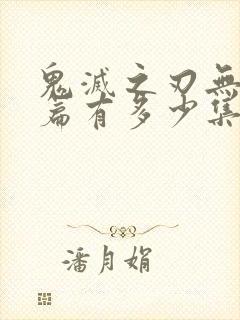 鬼滅之刃無
篇有多少集
潘月娟